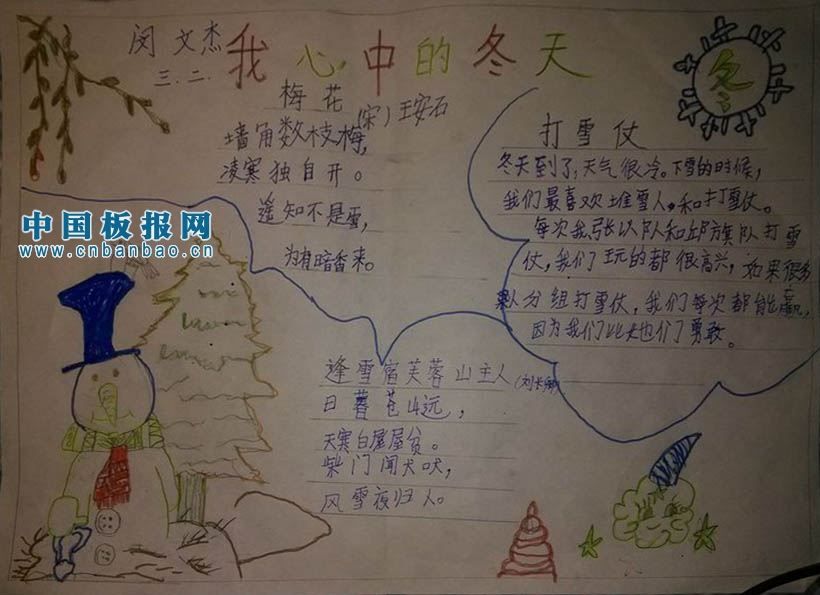 闵文杰
三.二.
我心中的冬天
冬
梅花
(宋)王安石
墙角数枝梅,
凌寒独自开。
遥知不是雪,
为有暗香来。
打雪仗
冬天到了,天气很冷。下雪的时候,
我们最喜欢堆雪人,和打雪仗。
每次我张以队和邱旗队打雪
仗,我们玩的都很高兴,如果很多
队分组打雪仗,我们每次都能赢,
因为我们比他们勇敢。
中国板报网
www.cnbanbao.cn
逢雪宿芙蓉山主人(刘长卿)
日暮苍山远,
天寒白屋屋贫。
柴门闻犬吠,
风雪夜归人。